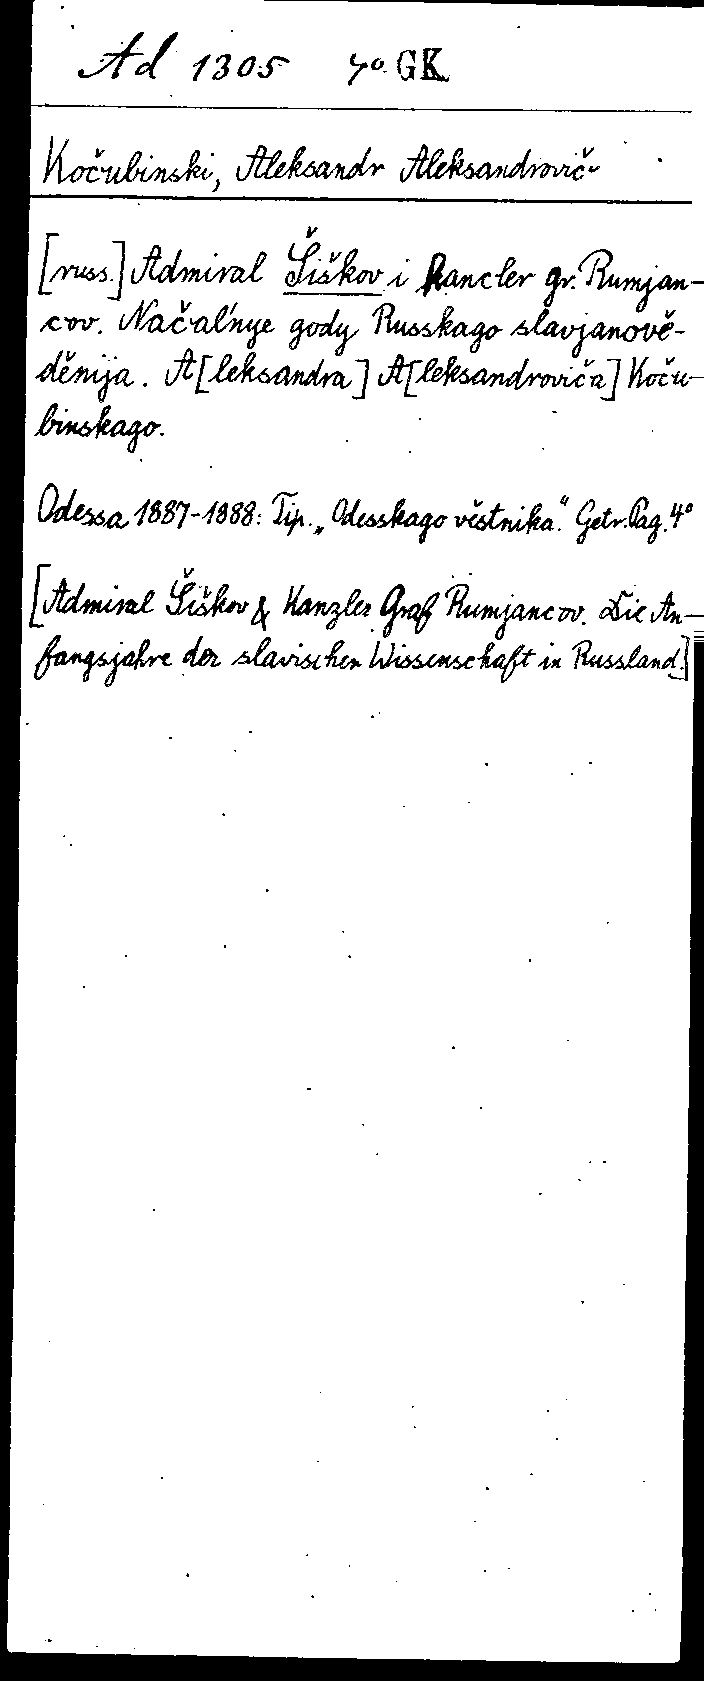 Ad 1305 4° GK
Kočubinski, Aleksandr Aleksandrovič
[russ.] Admiral Šiškov i kancler gr. Rumjan-
cov. Načal'nye gody Russkago slavjanově-
děnija. A[leksandra] A[leksandroviča] Koču-
binskago.
Odessa 1887-1888: Tip. „Odesskago věstnika“. Getr. Pag. 4°
[Admiral Šiškov & Kanzler Graf Rumjancov. Die An-
fangsjahre der slavischen Wissenschaft in Russland.]